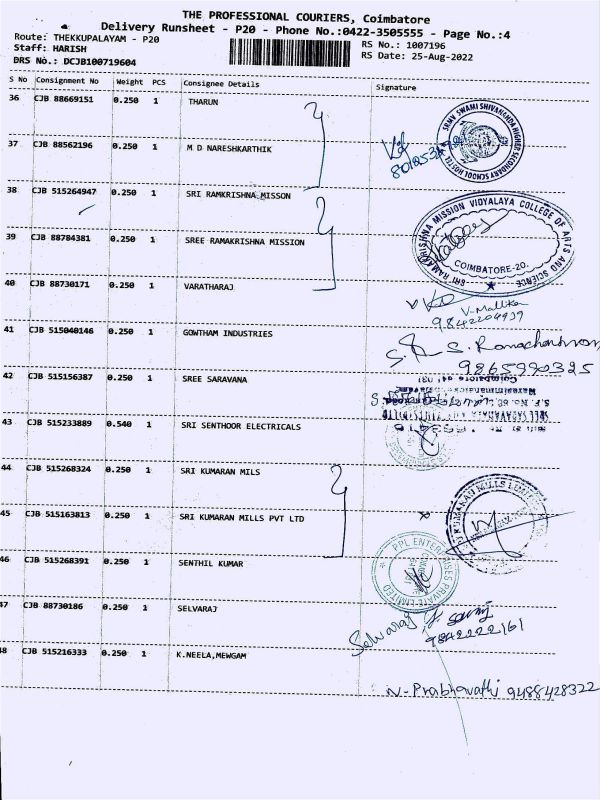 THE PROFESSIONAL COURIERS, Coimbatore
Delivery Runsheet - P20 - Phone No.:0422-3505555 - Page No.:4
Route: THEKKUPALAYAM - P20
Staff: HARISH
DRS No.: DCJB100719604
RS No.: 1007196
RS Date: 25-Aug-2022
S No Consignment No Weight PCS Consignee Details Signature
36 CJB 88669151 0.250 1 THARUN
SRMV SWAMI SHIVANANDA HIGHER SECONDARY SCHOOL HOSTEL
37 CJB 88562196 0.250 1 M D NARESHKARTHIK
38 CJB 515264947 0.250 1 SRI RAMKRISHNA MISSON
SRI RAMAKRISHNA MISSION VIDYALAYA COLLEGE OF ARTS AND SCIENCE
COIMBATORE-20.
39 CJB 88784381 0.250 1 SREE RAMAKRISHNA MISSION
40 CJB 88730171 0.250 1 VARATHARAJ
V-Mallika
9842204939
41 CJB 515040146 0.250 1 GOWTHAM INDUSTRIES
S. Ramachandran,
9865990325
42 CJB 515156387 0.250 1 SREE SARAVANA
43 CJB 515233889 0.540 1 SRI SENTHOOR ELECTRICALS
44 CJB 515268324 0.250 1 SRI KUMARAN MILS
45 CJB 515163813 0.250 1 SRI KUMARAN MILLS PVT LTD
KUMARAN MILLS LIMITED
46 CJB 515268391 0.250 1 SENTHIL KUMAR
PPL ENTERPRISES PRIVATE LIMITED
47 CJB 88730186 0.250 1 SELVARAJ
Selvaraj
9842222161
48 CJB 515216333 0.250 1 K.NEELA,MEWGAM
N-Prabhavathi 9488428322